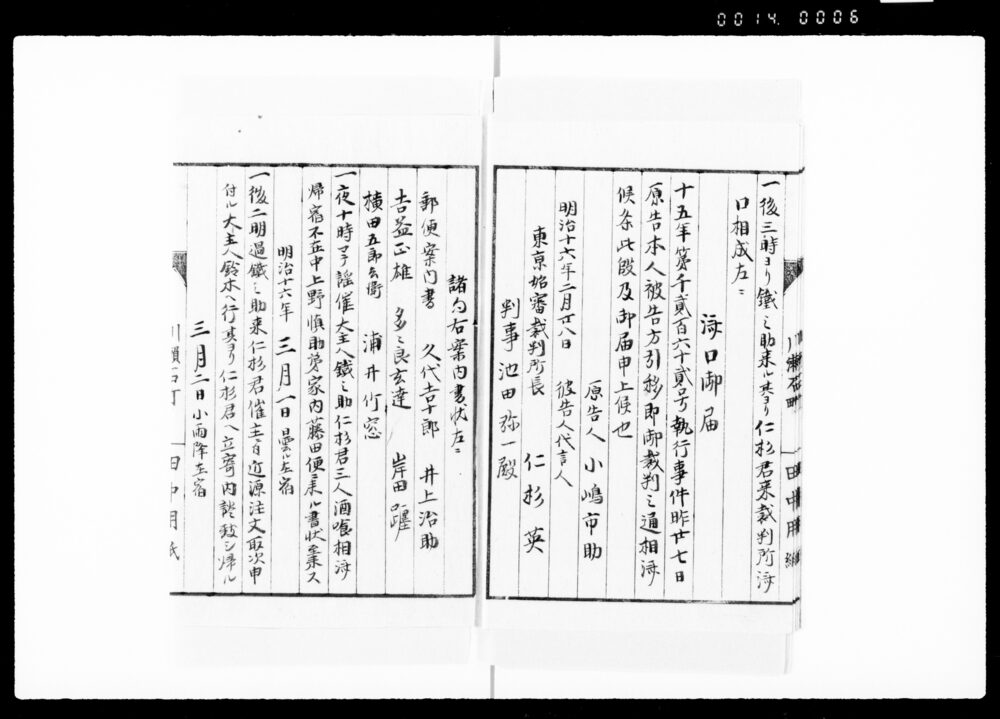 0014. 0006
一後三時ヨリ鐵之助来ル其ヨリ仁杉君来裁判所済
口相成左ニ
済口御届
十五年第千貳百六十貳号執行事件昨廿七日
原告本人被告方引移即御裁判之通相済
候条此段及御届申上候也
原告人 小嶋市助
明治十六年二月廿八日 被告人代言人
仁杉英
東京始審裁判所長
判事池田弥一殿
諸方右案内書状左ニ
郵便案内書 久代吉十郎 井上治助
吉益正雄 多々良玄達 岸田
横田五郎兵衛 浦井竹窓
一夜十時マテ謡催大主人鐵之助仁杉君三人酒喰相済
帰宿不在中上野慎助弟家内藤田便ニ来ル書状至来ス
明治十六年 三月一日曇ル在宿
一後二時過鐵之助来仁杉君催主ニ而近源注文取次申
付ル大主人鈴木ヘ行其ヨリ仁杉君ヘ立寄内談致シ帰ル
三月二日小雨降在宿
田中用紙